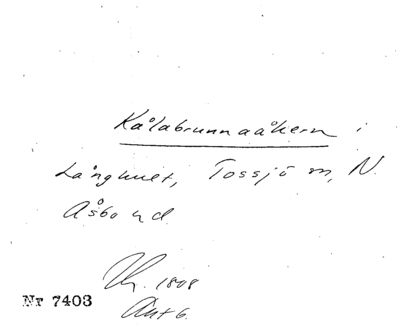 Kålabrunnaåkern i
Långhult, Tossjö m, N.
Åsbo hd.
1808
Akt 6.
Nr 7403